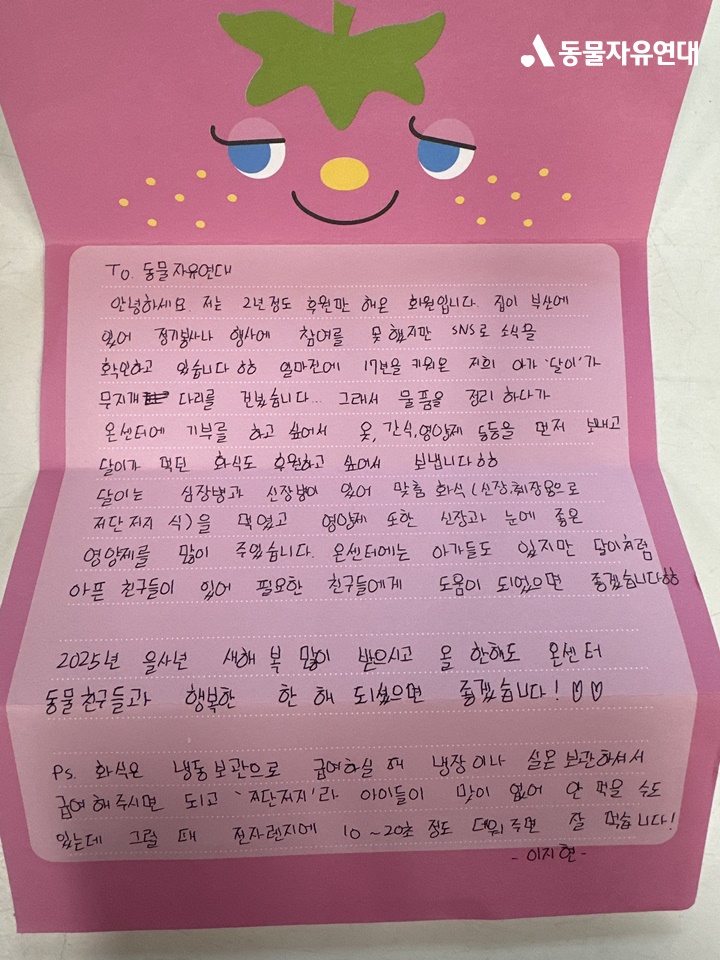 동물자유연대
To. 동물자유연대
안녕하세요. 저는 2년정도 후원만 해온 회원입니다. 집이 부산에
있어 정기봉사나 행사에 참여를 못 했지만 SNS로 소식을
확인하고 있습니다ㅎㅎ 얼마전에 17년을 키워온 저희 아가 '달이'가
무지개 다리를 건넜습니다... 그래서 물품을 정리 하다가
온센터에 기부를 하고 싶어서 옷, 간식, 영양제 등등을 먼저 보내고
달이가 먹던 화식도 후원하고 싶어서 보냅니다ㅎㅎ
달이는 심장병과 신장병이 있어 맞춤 화식(신장·췌장용으로
저단저지 식)을 먹였고 영양제 또한 신장과 눈에 좋은
영양제를 많이 주었습니다. 온센터에는 아가들도 있지만 달이처럼
아픈 친구들이 있어 필요한 친구들에게 도움이 되었으면 좋겠습니다ㅎㅎ
2025년 을사년 새해 복 많이 받으시고 올 한해도 온센터
동물친구들과 행복한 한 해 되셨으면 좋겠습니다! ♡♡
Ps. 화식은 냉동보관으로 급여하실 때 냉장이나 실온 보관하셔서
급여해주시면 되고 '저단저지'라 아이들이 맛이 없어 안 먹을 수도
있는데 그럴 때 전자렌지에 10~20초 정도 데워주면 잘 먹습니다!
- 이지현 -